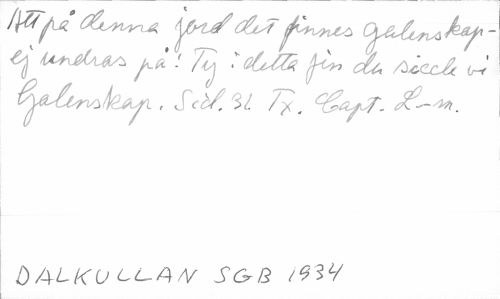 Att på denna jord det finnes galenskap -
ej undras på! Ty i detta fin du siecle vi
Galenskap. Sid. 31. Tx. Capt. L-m.
DALKULLAN SGB 1934